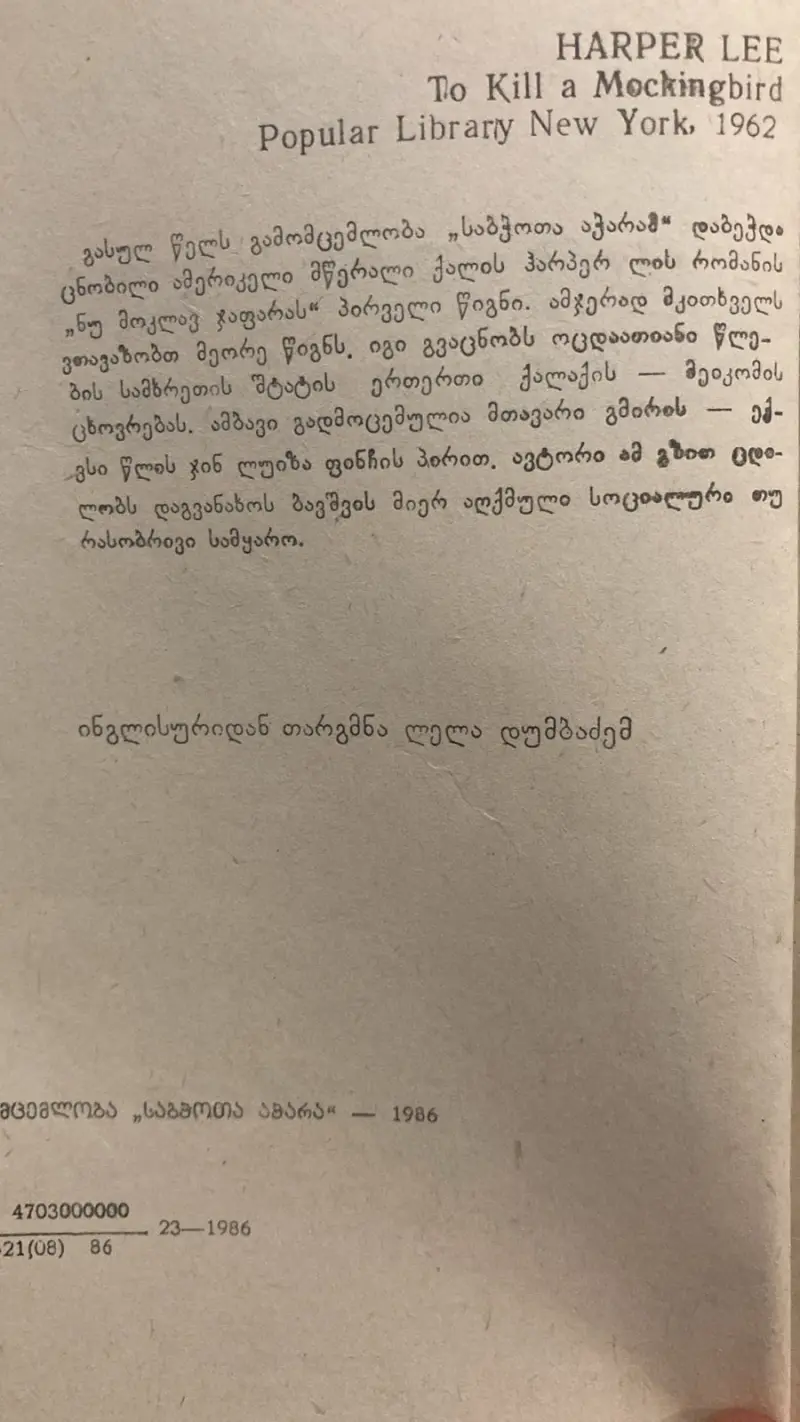 HARPER LEE
To Kill a Mockingbird
Popular Library New York, 1962
გასულ წელს გამომცემლობა „საბჭოთა აჭარამ“ დაბეჭდა
ცნობილი ამერიკელი მწერალი ქალის ჰარპერ ლის რომანის
„ნუ მოკლავ ჯაფარას“ პირველი წიგნი. ამჯერად მკითხველს
ვთავაზობთ მეორე წიგნს. იგი გვაცნობს ოცდაათიანი წლე-
ბის სამხრეთის შტატის ერთერთი ქალაქის — მეიკომის
ცხოვრებას. ამბავი გადმოცემულია მთავარი გმირის — ექ-
ვსი წლის ჯინ ლუიზა ფინჩის პირით. ავტორი ამ გზით ცდი-
ლობს დაგვანახოს ბავშვის მიერ აღქმული სოციალური თუ
რასობრივი სამყარო.
ინგლისურიდან თარგმნა ლელა დუმბაძემ
მცემლობა „საბჭოთა აჭარა“ — 1986
4703000000
23—1986
21(08) 86